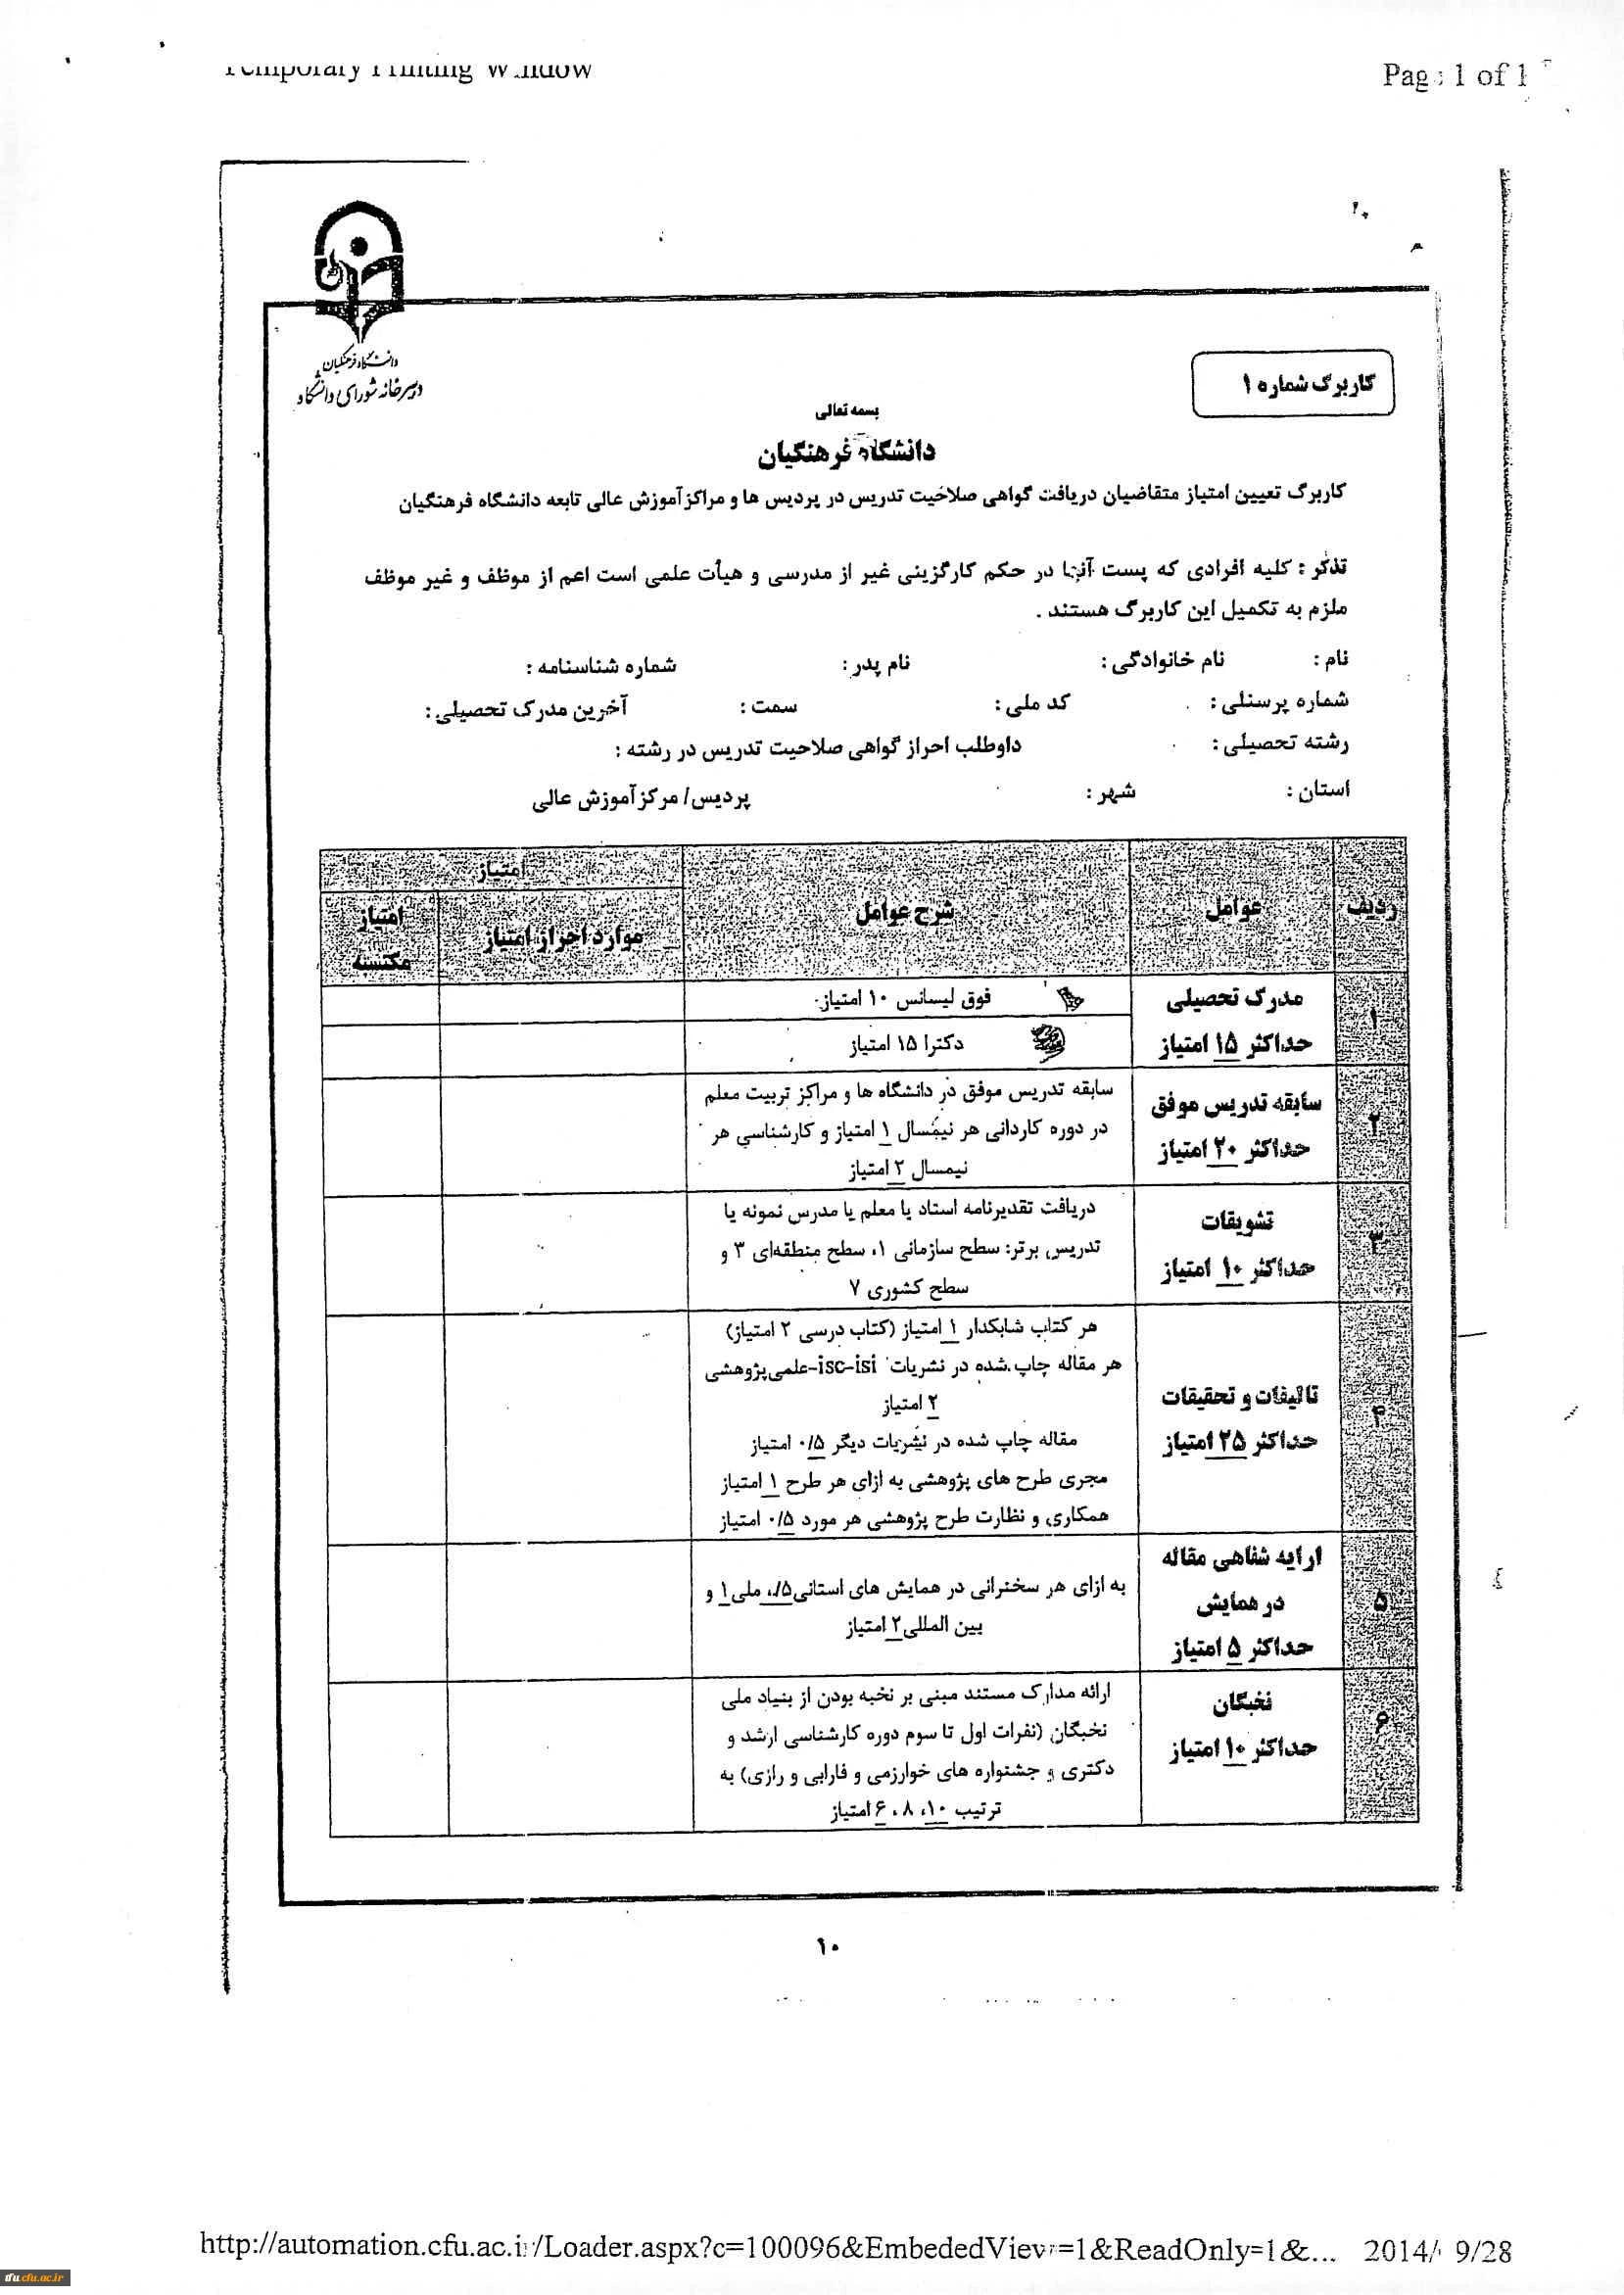 Temporary Printing Window
Page 1 of 1
دانشگاه فرهنگیان
دبیرخانه شورای دانشگاه
کاربرگ شماره ۱
بسمه تعالی
دانشگاه فرهنگیان
کاربرگ تعیین امتیاز متقاضیان دریافت گواهی صلاحیت تدریس در پردیس ها و مراکز آموزش عالی تابعه دانشگاه فرهنگیان
تذکر : کلیه افرادی که پست آنها در حکم کارگزینی غیر از مدرسی و هیأت علمی است اعم از موظف و غیر موظف
ملزم به تکمیل این کاربرگ هستند .
نام : نام خانوادگی : نام پدر : شماره شناسنامه :
شماره پرسنلی : کد ملی : سمت : آخرین مدرک تحصیلی :
رشته تحصیلی : داوطلب احراز گواهی صلاحیت تدریس در رشته :
استان : شهر : پردیس/ مرکز آموزش عالی
ردیف عوامل شرح عوامل امتیاز
موارد احراز امتیاز امتیاز مکتسبه
۱
مدرک تحصیلی
حداکثر ۱۵ امتیاز
فوق لیسانس ۱۰ امتیاز
دکترا ۱۵ امتیاز
۲
سابقه تدریس موفق
حداکثر ۲۰ امتیاز
سابقه تدریس موفق در دانشگاه ها و مراکز تربیت معلم
در دوره کاردانی هر نیمسال ۱ امتیاز و کارشناسی هر
نیمسال ۲ امتیاز
۳
تشویقات
حداکثر ۱۰ امتیاز
دریافت تقدیرنامه استاد یا معلم یا مدرس نمونه یا
تدریس برتر: سطح سازمانی ۱، سطح منطقه‌ای ۳ و
سطح کشوری ۷
۴
تالیفات و تحقیقات
حداکثر ۲۵ امتیاز
هر کتاب شابکدار ۱ امتیاز (کتاب درسی ۲ امتیاز)
هر مقاله چاپ شده در نشریات isc-isi-علمی پژوهشی
۲ امتیاز
مقاله چاپ شده در نشریات دیگر ۰/۵ امتیاز
مجری طرح های پژوهشی به ازای هر طرح ۱ امتیاز
همکاری و نظارت طرح پژوهشی هر مورد ۰/۵ امتیاز
۵
ارایه شفاهی مقاله
در همایش
حداکثر ۵ امتیاز
به ازای هر سخنرانی در همایش های استانی ۰/۵، ملی ۱ و
بین المللی ۲ امتیاز
۶
نخبگان
حداکثر ۱۰ امتیاز
ارائه مدارک مستند مبنی بر نخبه بودن از بنیاد ملی
نخبگان (نفرات اول تا سوم دوره کارشناسی ارشد و
دکتری و جشنواره های خوارزمی و فارابی و رازی) به
ترتیب ۱۰، ۸، ۶ امتیاز
۱۰
http://automation.cfu.ac.ir/Loader.aspx?c=100096&EmbededView=1&ReadOnly=1&... 2014/09/28
tfu.cfu.ac.ir